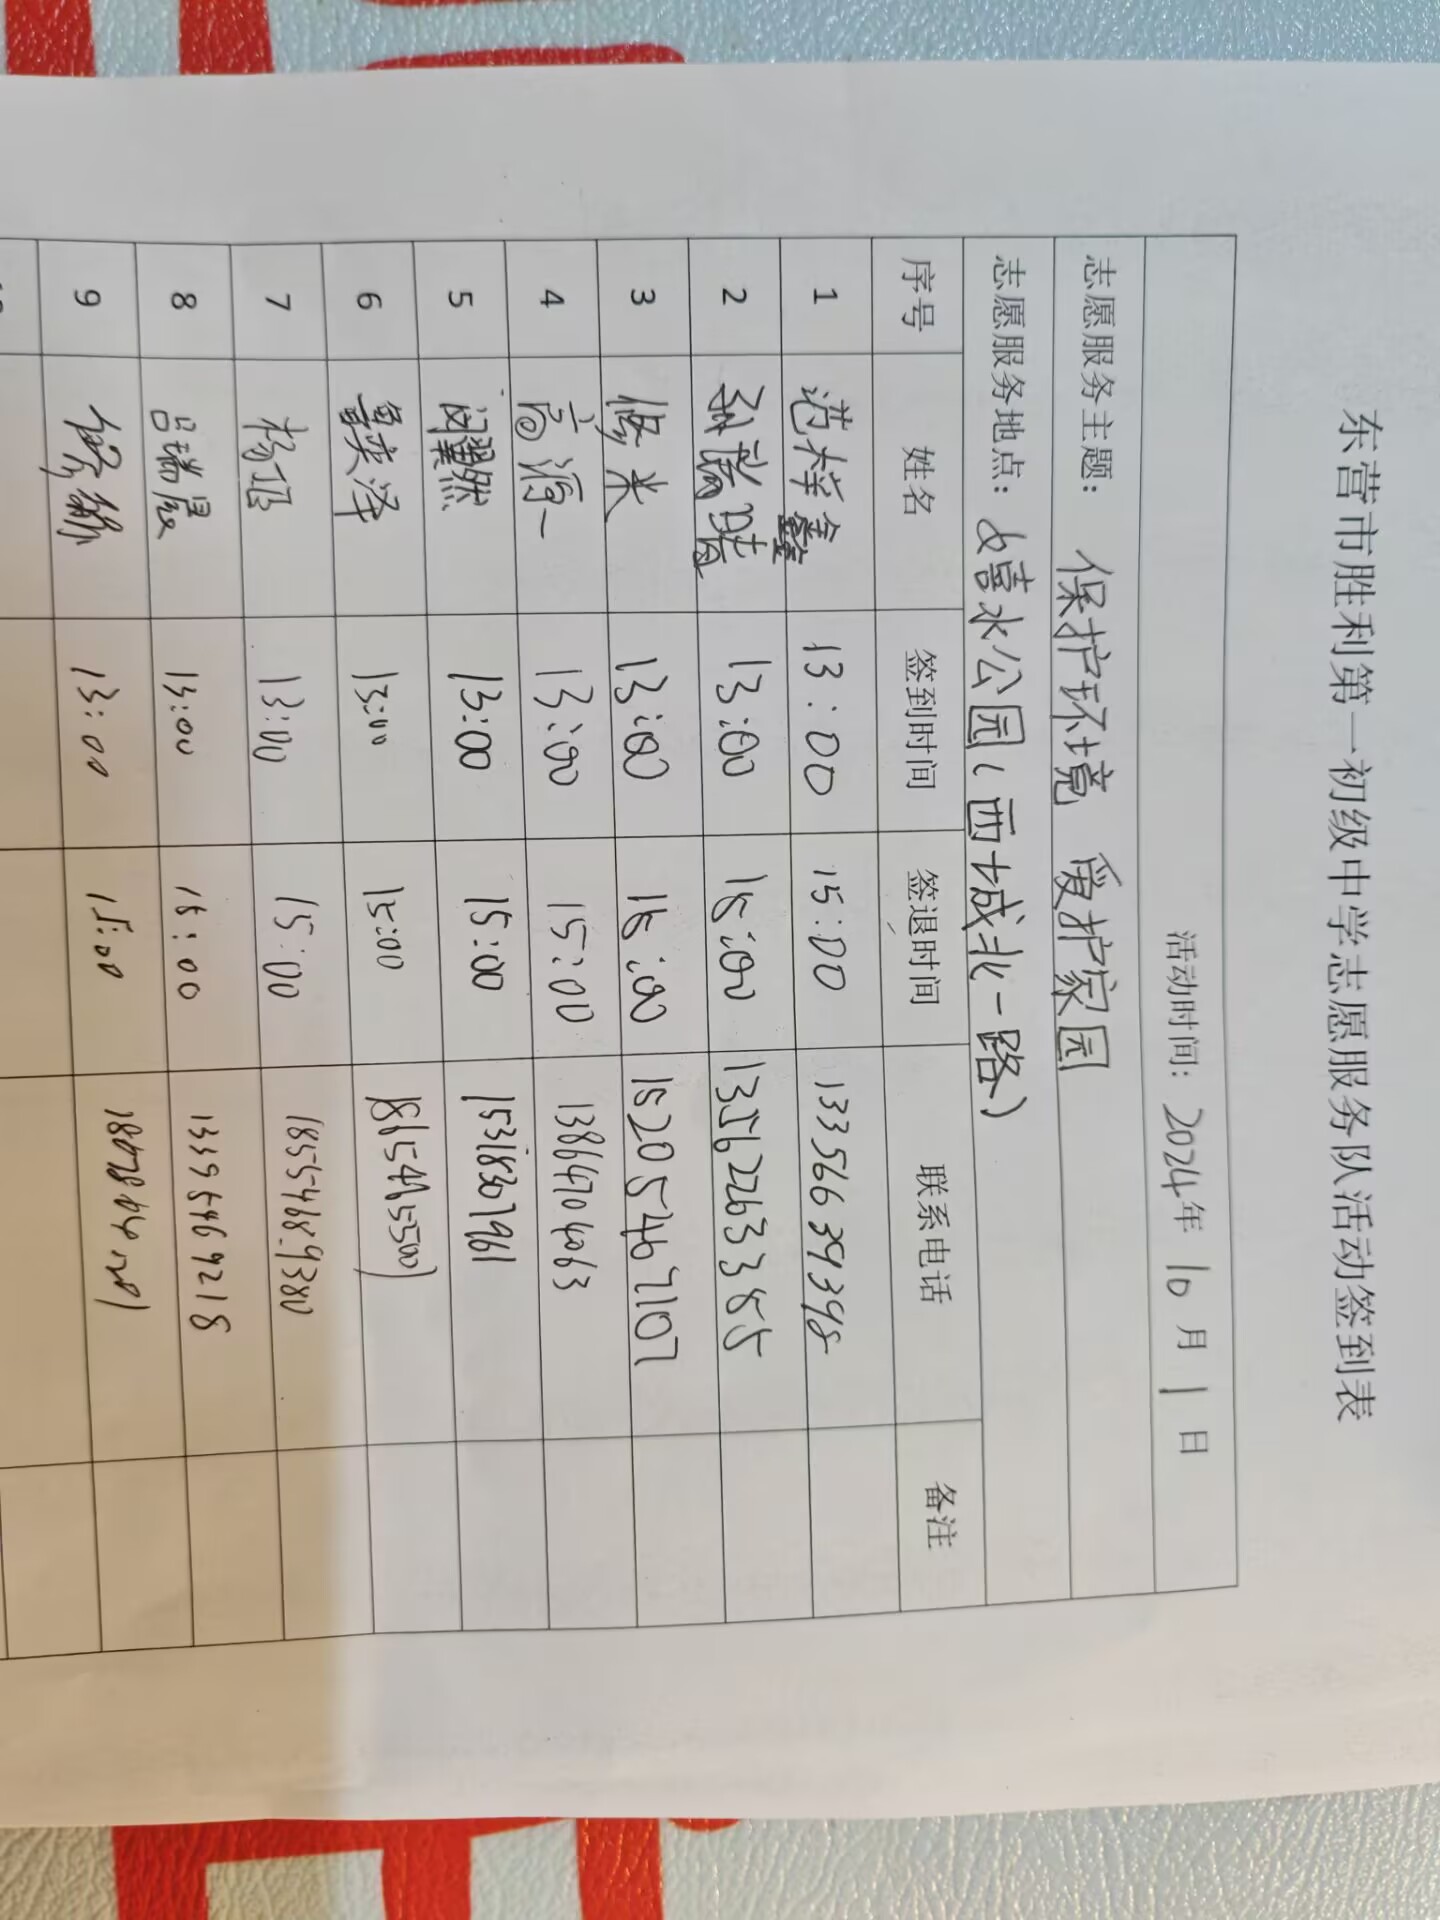 东营市胜利第一初级中学志愿服务队活动签到表
活动时间：2024年 10 月 1 日
志愿服务主题： 保护环境 爱护家园
志愿服务地点： 嬉水公园（西城北一路）
序号 姓名 签到时间 签退时间 联系电话 备注
1 范梓鑫 13:00 15:00 13356639398
2 13:00 15:00 13562263385
3 修米 13:00 15:00 15205467107
4 高源一 13:00 15:00 13864704063
5 闵翼然 13:00 15:00 15318307961
6 鲁奕泽 13:00 15:00
7 13:00 15:00 18554689380
8 吕瑞晨 13:00 15:00 13395469218
9 13:00 15:00